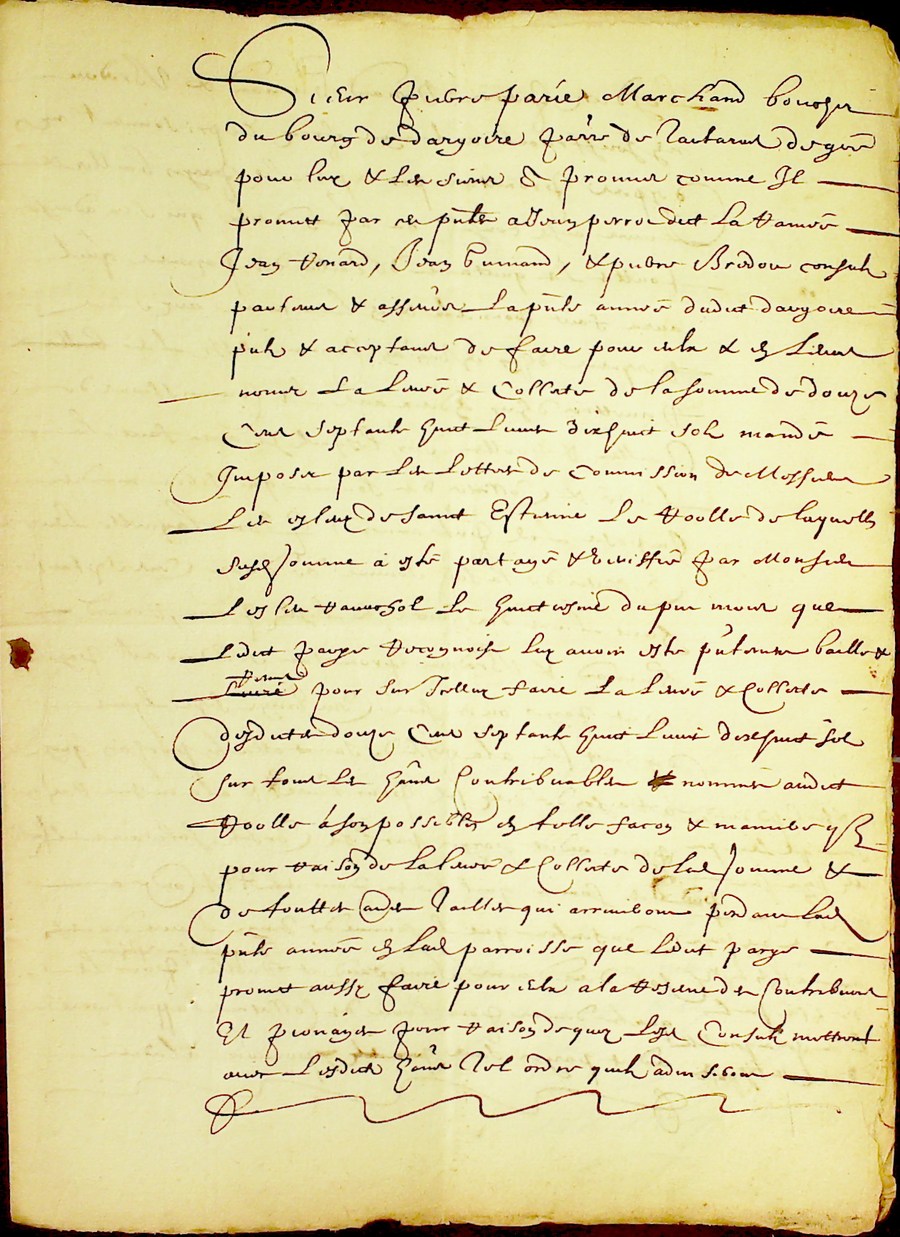 Sieur pierre parie Marchand boucher
du bourg de dargoire parr de de gré
pour luy & les siens a promis comme Il
promect par ces pnte a Jean perroudet La Ramée
Jean Henard, Jean , & pierre Bredou consulz
& La pnte année dudict dargoire
pntz & acceptant de faire pour eulx & en Leurs
noms La Levée & Collecte de la somme de douze
Cent septante huit Livres dixhuit solz mandé
Imposer par Les Lettres de Commission de Messieurs
Les esleuz de sainct Estienne Le Roolle de laquelle
susd somme à esté partagé & veriffié par Monsieur
L'esleu Le huictiesme du pnt mois que
Ledict parye Recognoist luy avoir esté pntement baillé &
Remis pour sur Icelluy faire La Levée & Collecte
desdictes douze Cent septante huit Livres dixhuict solz
sur tous Les Contribuables & nommés audict
Roolle à son possible en telle facon & maniere
pour Raison de La levée & Collecte de lad somme &
de touttes autres Tailles qui arriveront pendant Lad
pnte année en Lad parroisse que Ledict parye
promect aussy faire pour eulx a la des Contribuables
Et pour Raison de quoy Lesd Consulz mettront
avec Lesdicts Tel ordre quilz adviseront